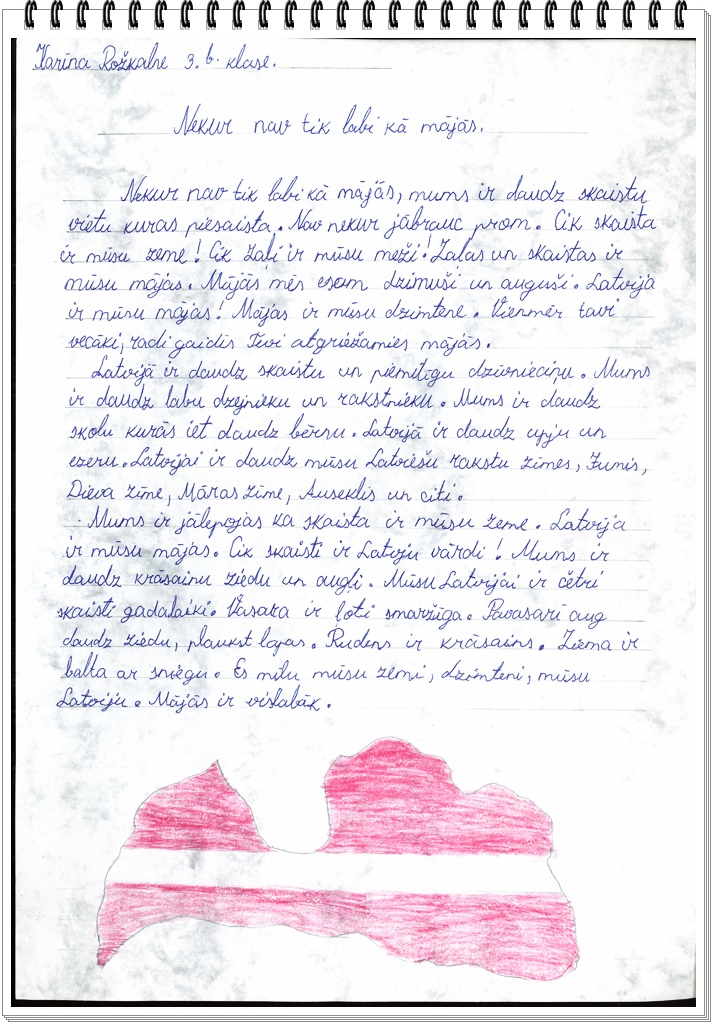 Karīna Rožkalne 3.b. klase.
Nekur nav tik labi kā mājās.
Nekur nav tik labi kā mājās, mums ir daudz skaistu
vietu kuras piesaista. Nav nekur jābrauc prom. Cik skaista
ir mūsu zeme! Cik zaļi ir mūsu meži! Zaļas un skaistas ir
mūsu mājas. Mājās mēs esam dzimuši un auguši. Latvija
ir mūsu mājas! Mājas ir mūsu dzimtene. Vienmēr tavi
vecāki, radi gaidīs Tevi atgriežamies mājās.
Latvijā ir daudz skaistu un piemīlīgu dzīvnieciņu. Mums
ir daudz labu dzejnieku un rakstnieku. Mums ir daudz
skolu kurās iet daudz bērnu. Latvijā ir daudz upju un
ezeru. Latvijai ir daudz mūsu Latviešu rakstu zīmes, Jumis,
Dieva zīme, Māras zīme, Auseklis un citi.
Mums ir jālepojas ka skaista ir mūsu zeme. Latvija
ir mūsu mājas. Cik skaisti ir Latvju vārdi! Mums ir
daudz krāsainu ziedu un augļi. Mūsu Latvijai ir četri
skaisti gadalaiki. Vasara ir ļoti smaržīga. Pavasarī aug
daudz ziedu, plaukst lapas. Rudens ir krāsains. Ziema ir
balta ar sniegu. Es mīlu mūsu zemi, dzimteni, mūsu
Latviju. Mājās ir vislabāk.